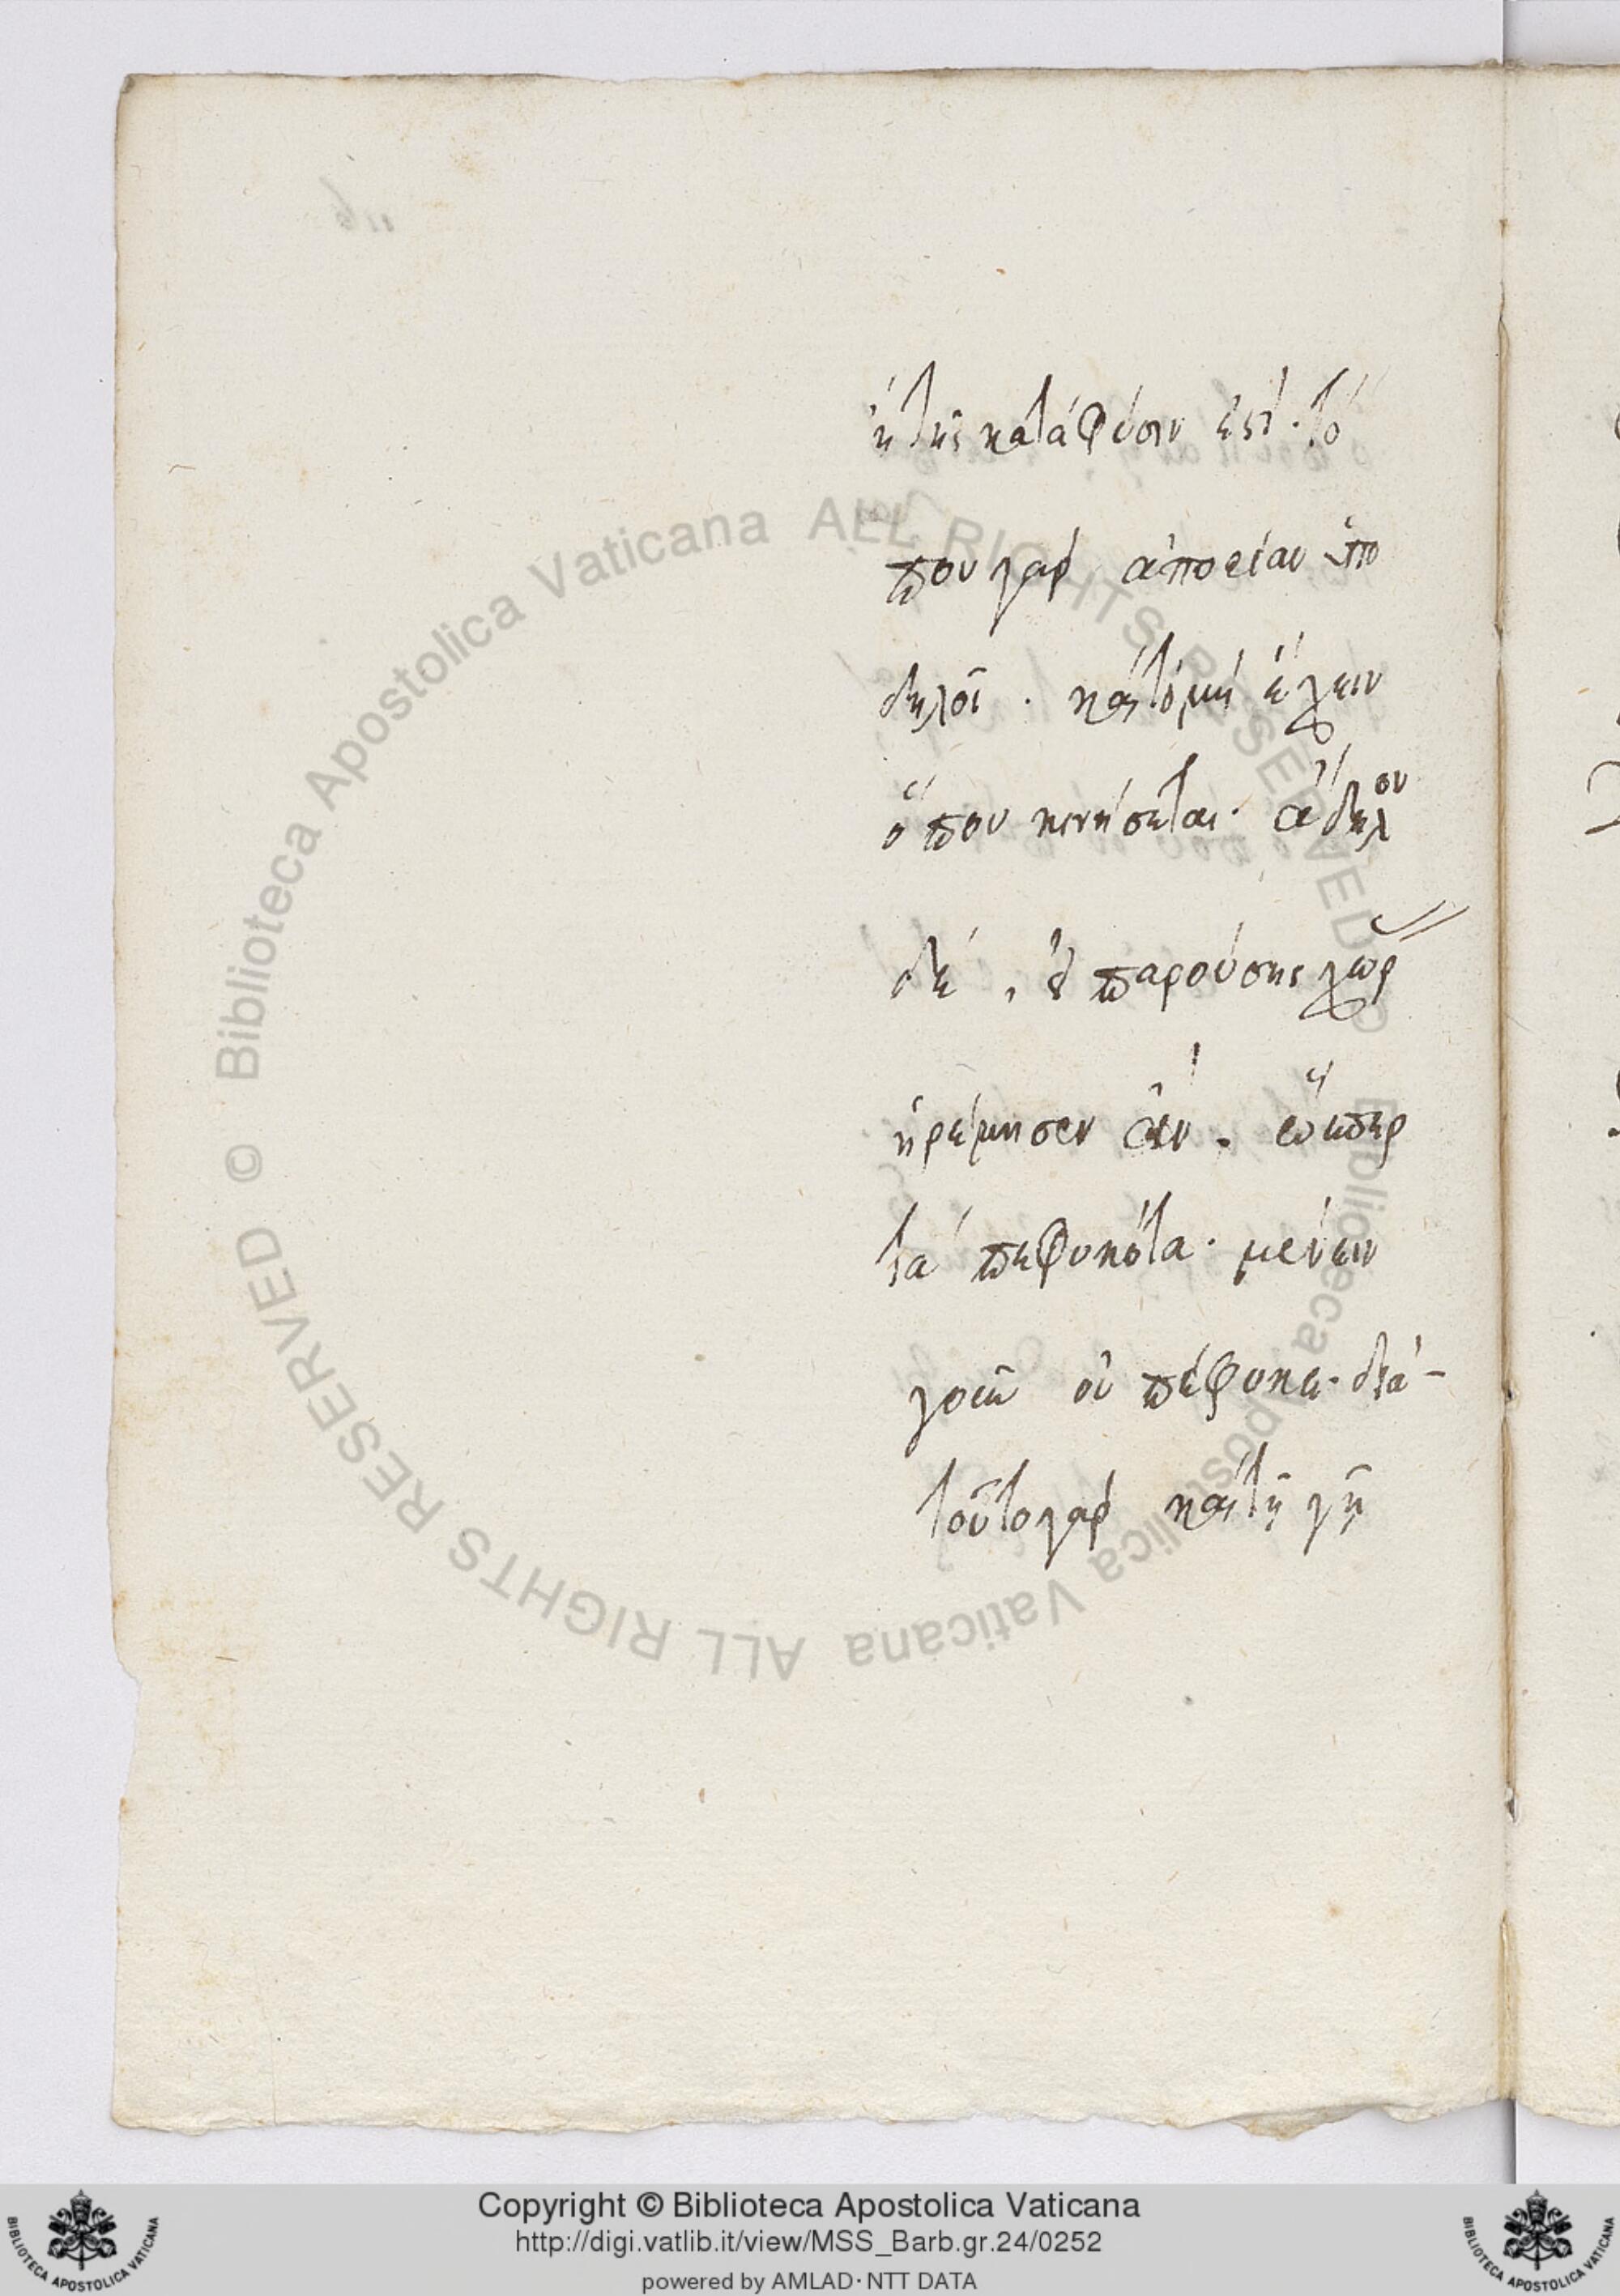 ἡ τῆς κατὰ φύσιν ἐστὶ. τὸ
που γὰρ ἀπορίαν ὑπο
δηλοῖ. καὶ τὸ μὴ ἔχειν
ὅπου κινήσεται. ἄδηλον
δὲ, εἰ παρούσης χώρ
ἠρέμησεν ἄν. εἴπερ
τὰ πεφυκότα. μένειν
οὐ πέφυκε. διὰ-
τοῦτο γὰρ καὶ τῇ γῇ
Biblioteca Apostolica Vaticana ALL RIGHTS RESERVED ©
Biblioteca Apostolica Vaticana ALL RIGHTS RESERVED ©
Copyright © Biblioteca Apostolica Vaticana
http://digi.vatlib.it/view/MSS_Barb.gr.24/0252
powered by AMLAD·NTT DATA
BIBLIOTECA APOSTOLICA VATICANA
BIBLIOTECA APOSTOLICA VATICANA